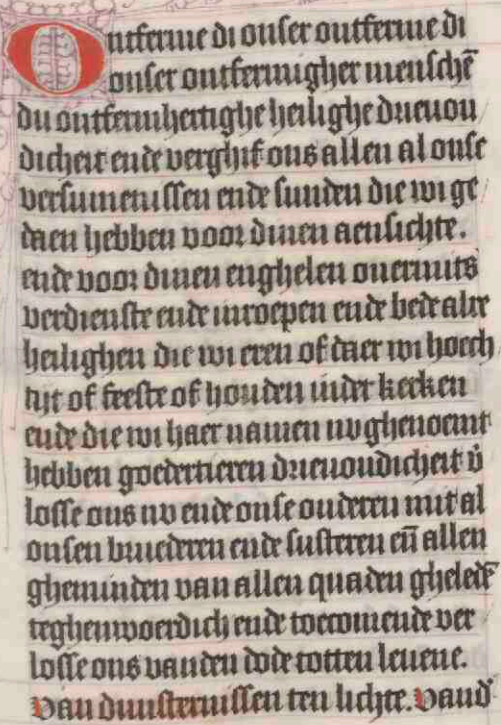 Ontferme di onser ontferme di
onser ontfermigher menschē
du ontfermhertighe heilighe drieuou
dicheit ende verghif ons allen al onse
versumenissen ende sunden die wi ge
daen hebben voor dinen aensichte.
ende voor dinen enghelen ouermits
verdienste ende inroepen ende bede alre
heilighen die wi eren of daer wi hoech
tijt of feeste of houden inder kecken
ende die wi haer namen nv ghenoemt
hebben goedertieren drieuoudicheit v̄
losse ons nv ende onse ouderen mit al
onsen bruederen ende susteren eñ allen
gheminden van allen quaden gheledē
teghenwoerdich ende toecomende ver
losse ons vanden dode totten leuene.
Van duusternissen ten lichte. Vand᷑